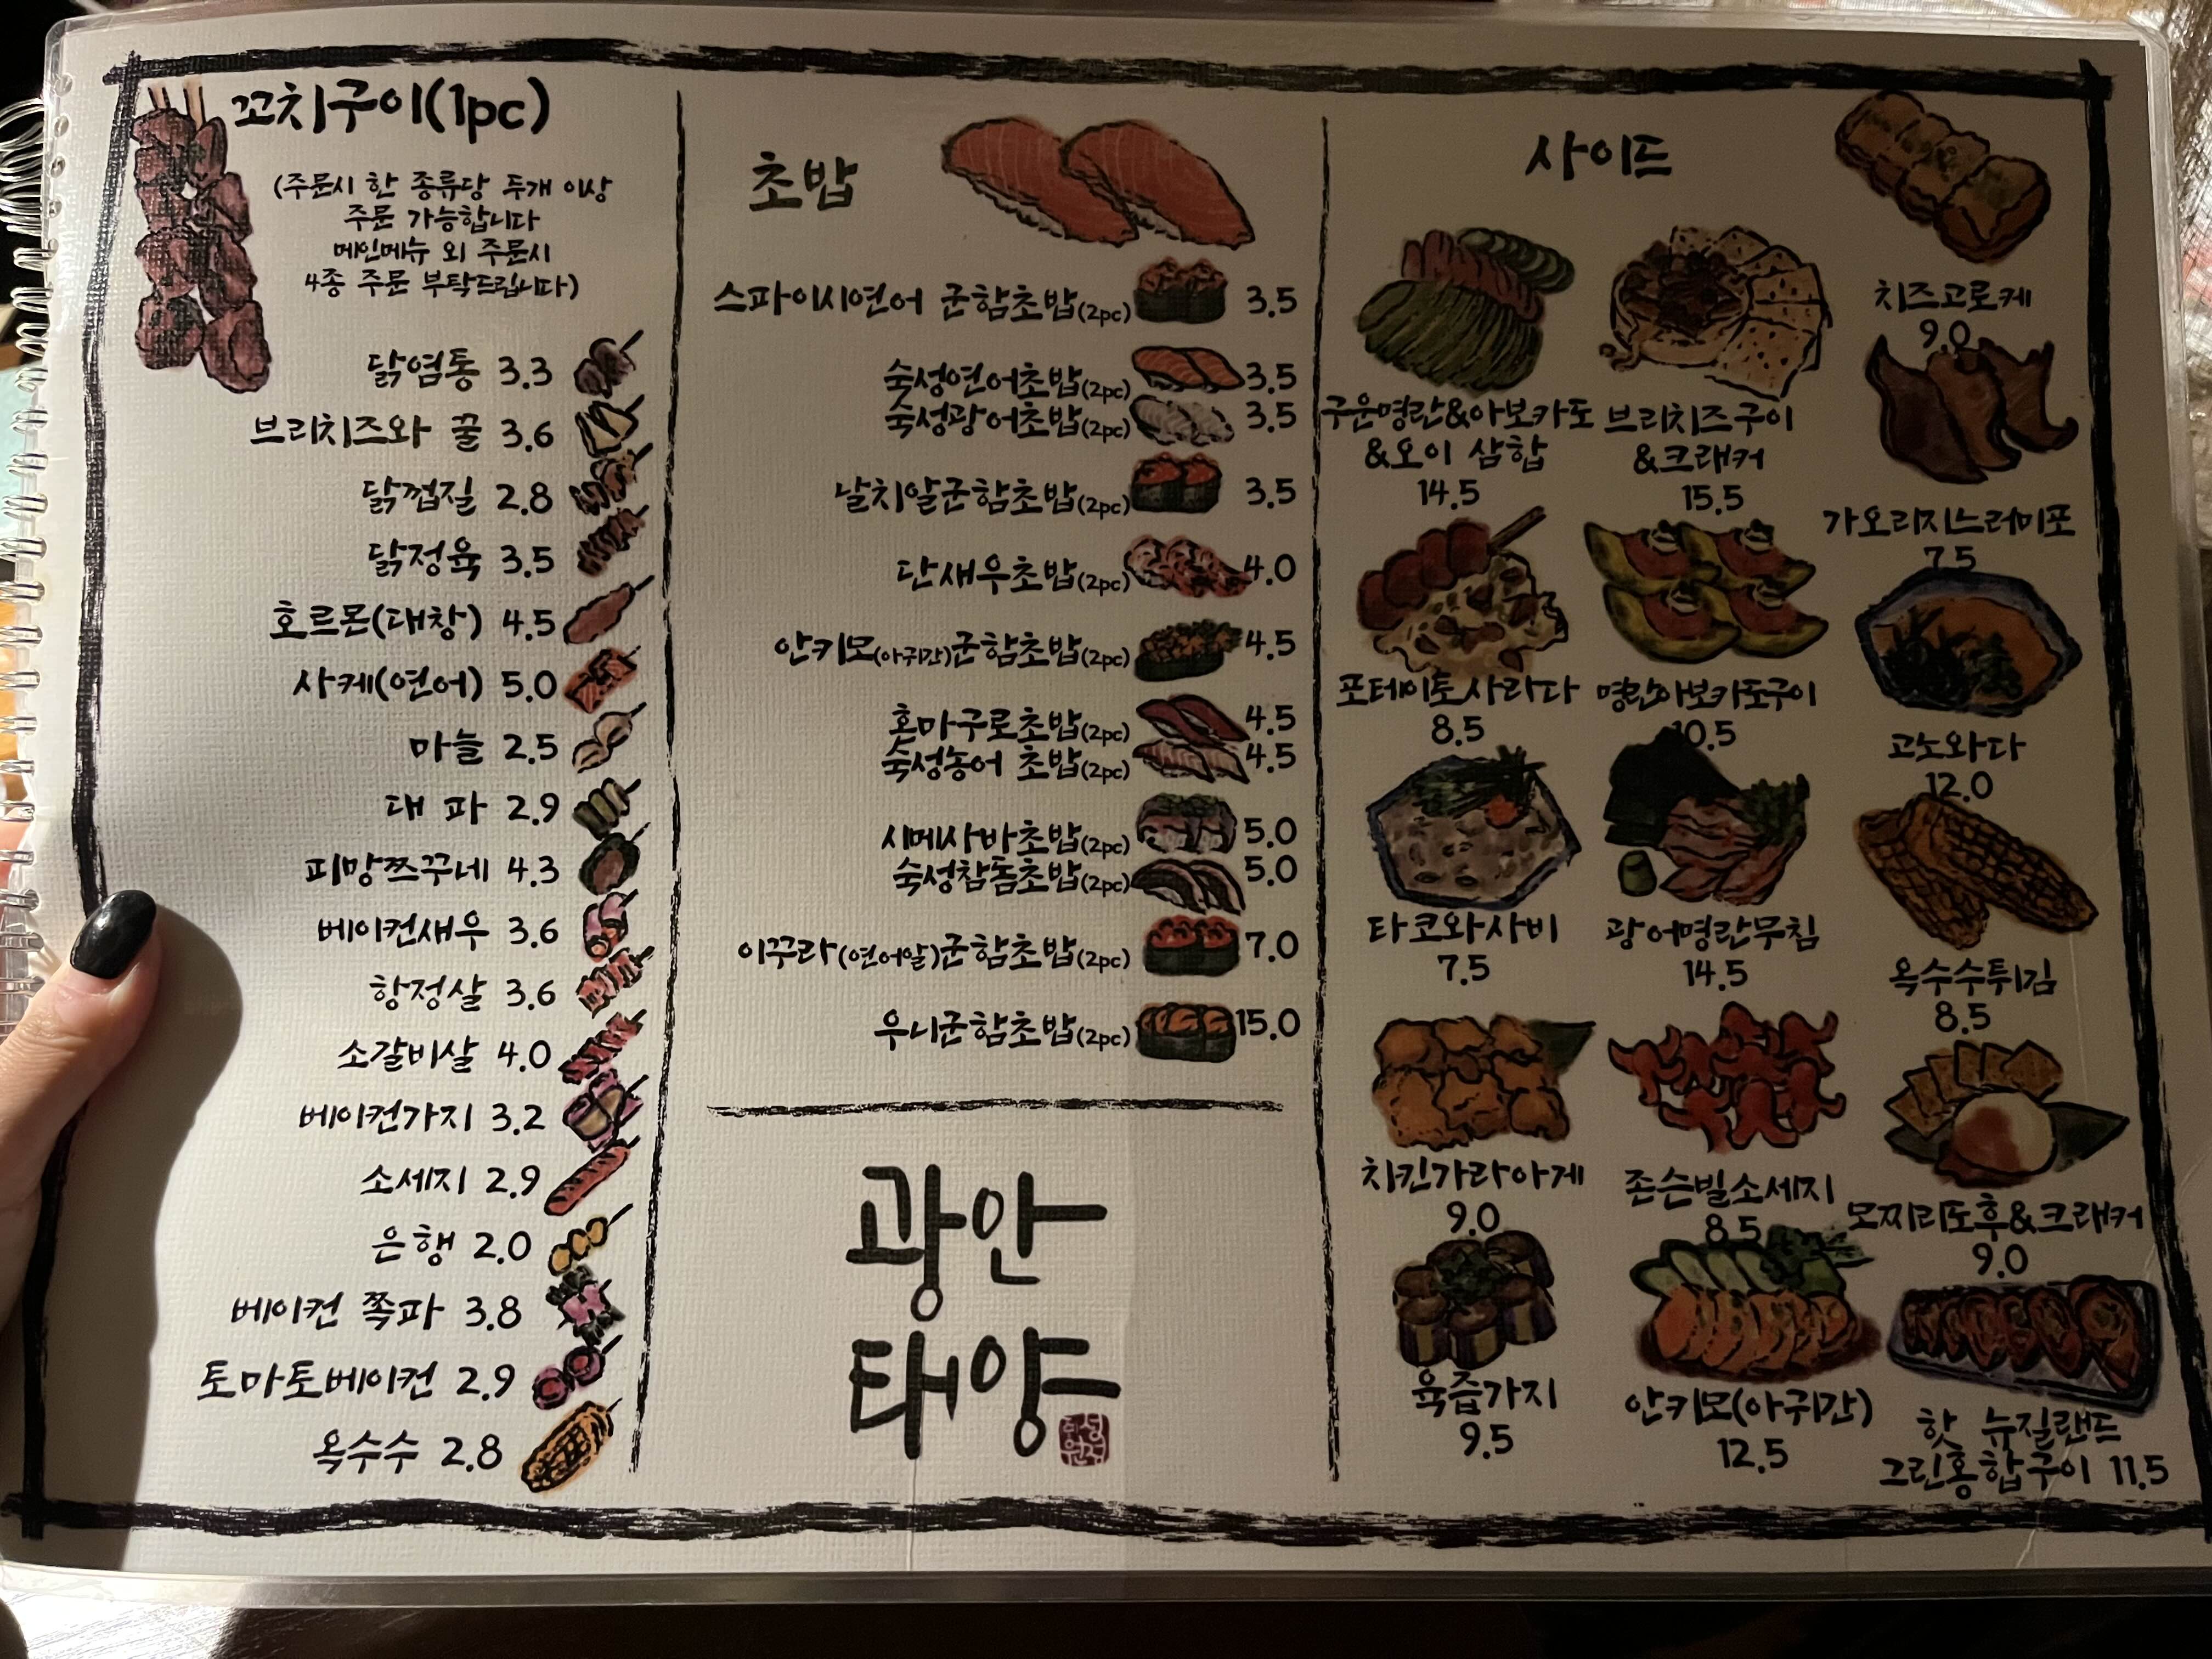 꼬치구이(1pc)
(주문시 한 종류당 두개 이상
주문 가능합니다
메인메뉴 외 주문시
4종 주문 부탁드립니다)
닭염통 3.3
브리치즈와 꿀 3.6
닭껍질 2.8
닭정육 3.5
호르몬(대창) 4.5
사케(연어) 5.0
마늘 2.5
대 파 2.9
피망쯔꾸네 4.3
베이컨새우 3.6
항정살 3.6
소갈비살 4.0
베이컨가지 3.2
소세지 2.9
은행 2.0
베이컨 쪽파 3.8
토마토베이컨 2.9
옥수수 2.8
초밥
스파이시연어 군함초밥(2pc) 3.5
숙성연어초밥(2pc) 3.5
숙성광어초밥(2pc) 3.5
날치알군함초밥(2pc) 3.5
단새우초밥(2pc) 4.0
안키모(아귀간)군함초밥(2pc) 4.5
혼마구로초밥(2pc) 4.5
숙성농어 초밥(2pc) 4.5
시메사바초밥(2pc) 5.0
숙성참돔초밥(2pc) 5.0
이꾸라(연어알)군함초밥(2pc) 7.0
우니군함초밥(2pc) 15.0
광안
태양
사이드
구운명란&아보카도
&오이 삼합
14.5
브리치즈구이
&크래커
15.5
치즈고로케
9.0
포테이토사라다
8.5
명란아보카도구이
10.5
가오리지느러미포
7.5
타코와사비
7.5
광어명란무침
14.5
고노와다
12.0
치킨가라아게
9.0
존슨빌소세지
8.5
옥수수튀김
8.5
육즙가지
9.5
안키모(아귀간)
12.5
모찌리도후&크래커
9.0
핫 뉴질랜드
그린홍합구이 11.5